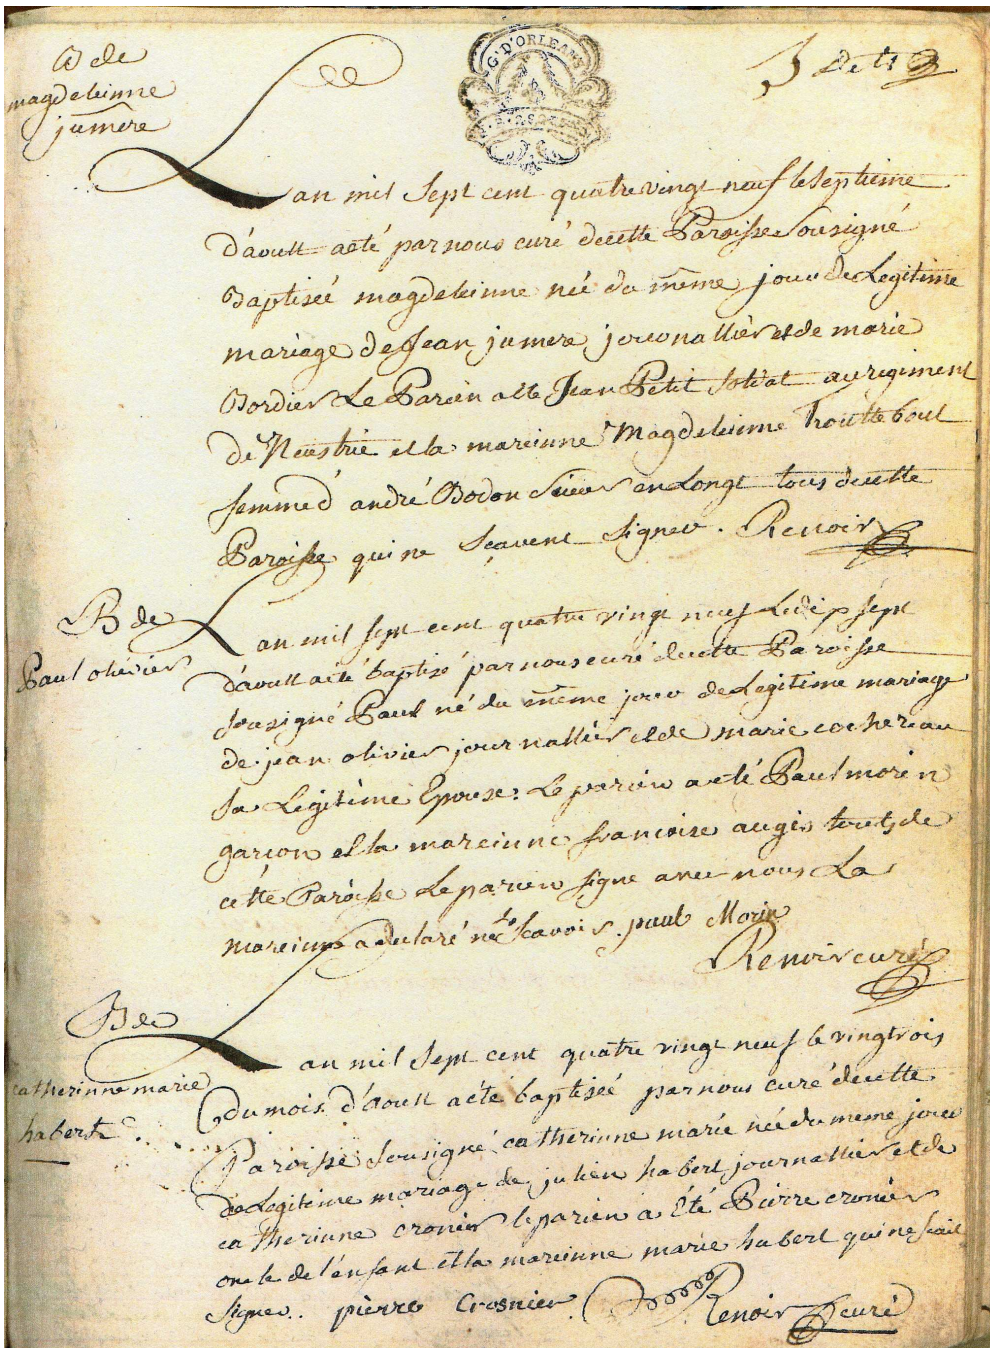 B de
magdeleinne
jumere
G. D'ORLEANS
Lan mil sept cent quatre vingt neuf le septieme
d'aoult a eté par nous curé decette Paroisse Sousigné
Baptiseé magdeleinne neé du même jour de Legitime
mariage de Jean jumere journallier et de marie
Bordier Le Parein a ete Jean Petit soldat au regiment
de Neustrie et la mareinne Magdeleinne Trouttebout
femme d'andré Bodon Sieur en Longt tous decette
Paroisse qui ne sçavent signer. Renoir
B de
Paul olivier
Lan mil sept cent quatre vingt neuf Ledip sept
d'aoult a eté baptisé par nous curé decette Paroisse
sousigné Paul né du même jour de Legitime mariage
de jean olivier journallier et de marie cochereau
sa Legitime Epouse: Le parein a eté Paul morin
garçon et la mareinne francoise augis touts de
cette Paroisse Le parein signe avec nous La
mareinne a declaré ne le scavoir. paul Morin
Renoir curé
B de
catherinne marie
habert
Lan mil sept cent quatre vingt neuf le vingtrois
du mois d'aoult a eté baptiseé par nous curé decette
Paroisse sousigné catherinne marie neé du meme jour
de Legitime mariage de julien habert journallier et de
catherinne cronier le parein a Eté Pierre cronier
oncle de l'enfant et la mareinne marie habert qui ne scait
signer. pierre Crosnier Renoir curé